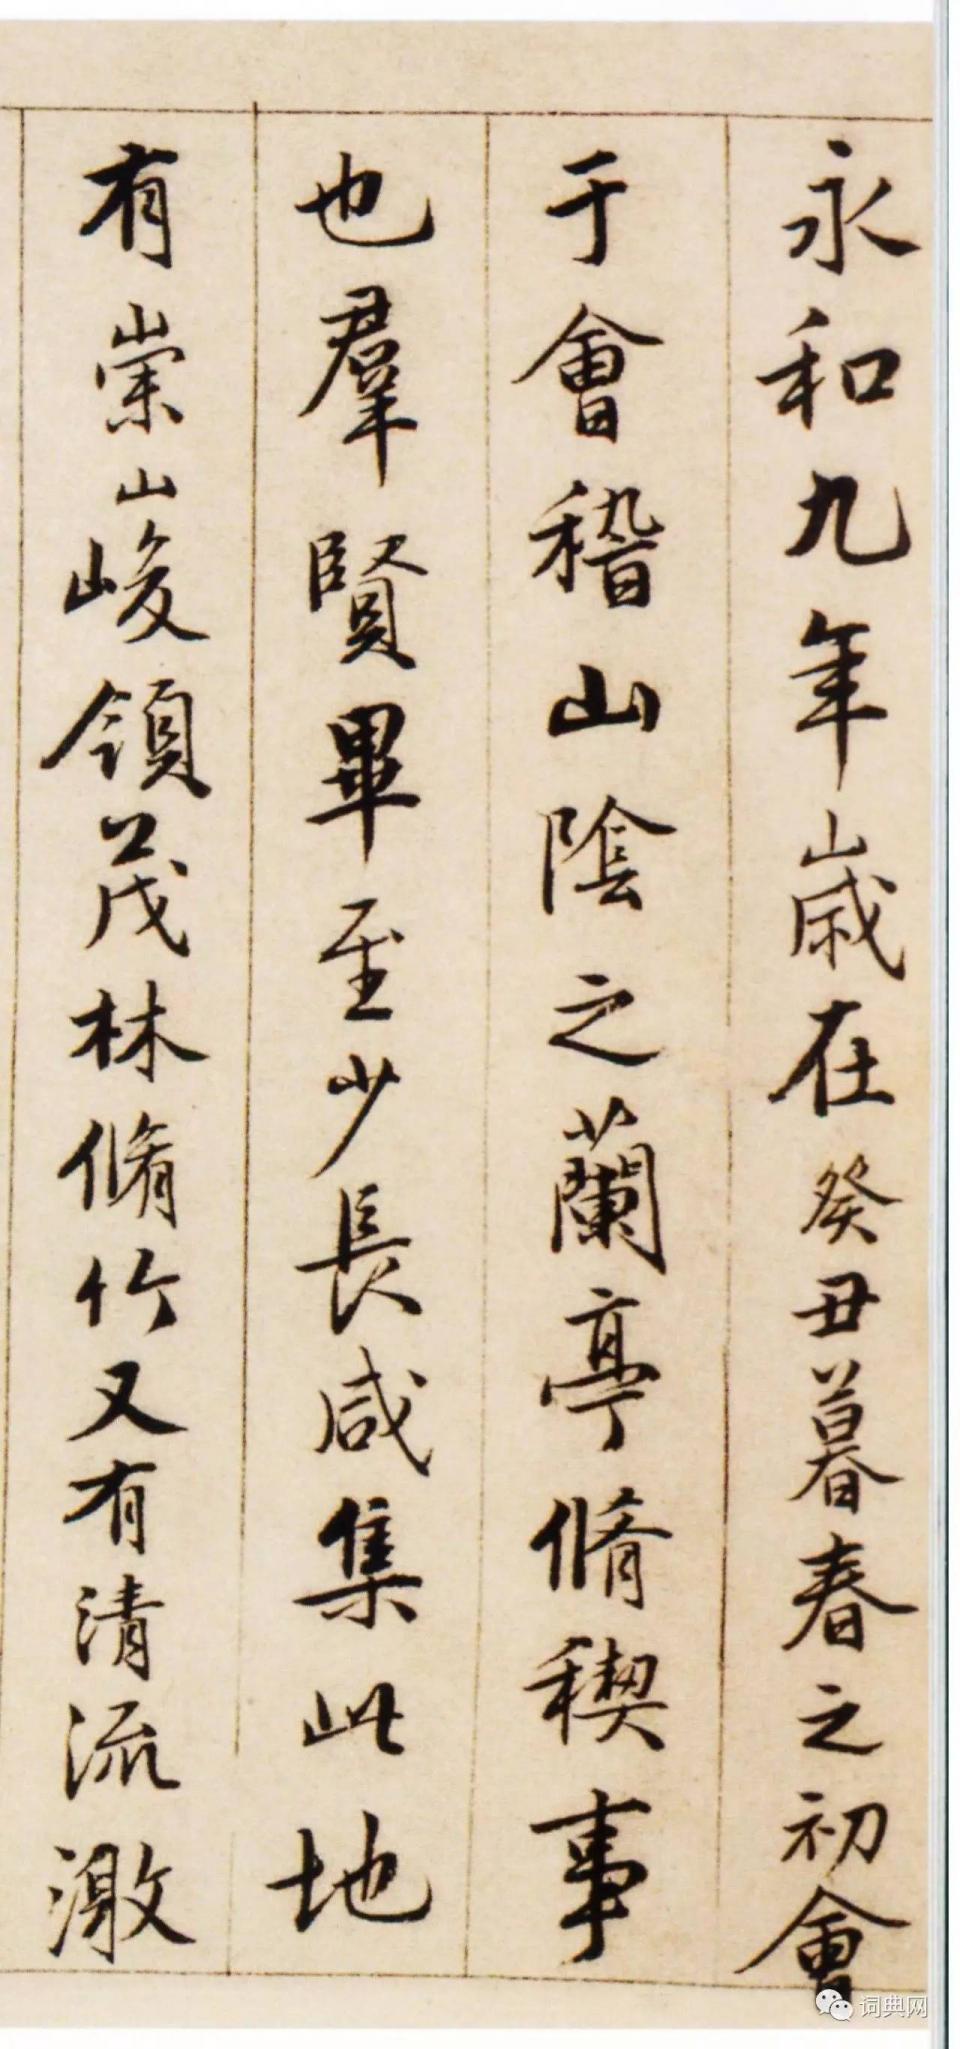 永和九年歲在癸丑暮春之初會
于會稽山陰之蘭亭脩稧事
也羣賢畢至少長咸集此地
有崇山峻領茂林脩竹又有清流激
词典网